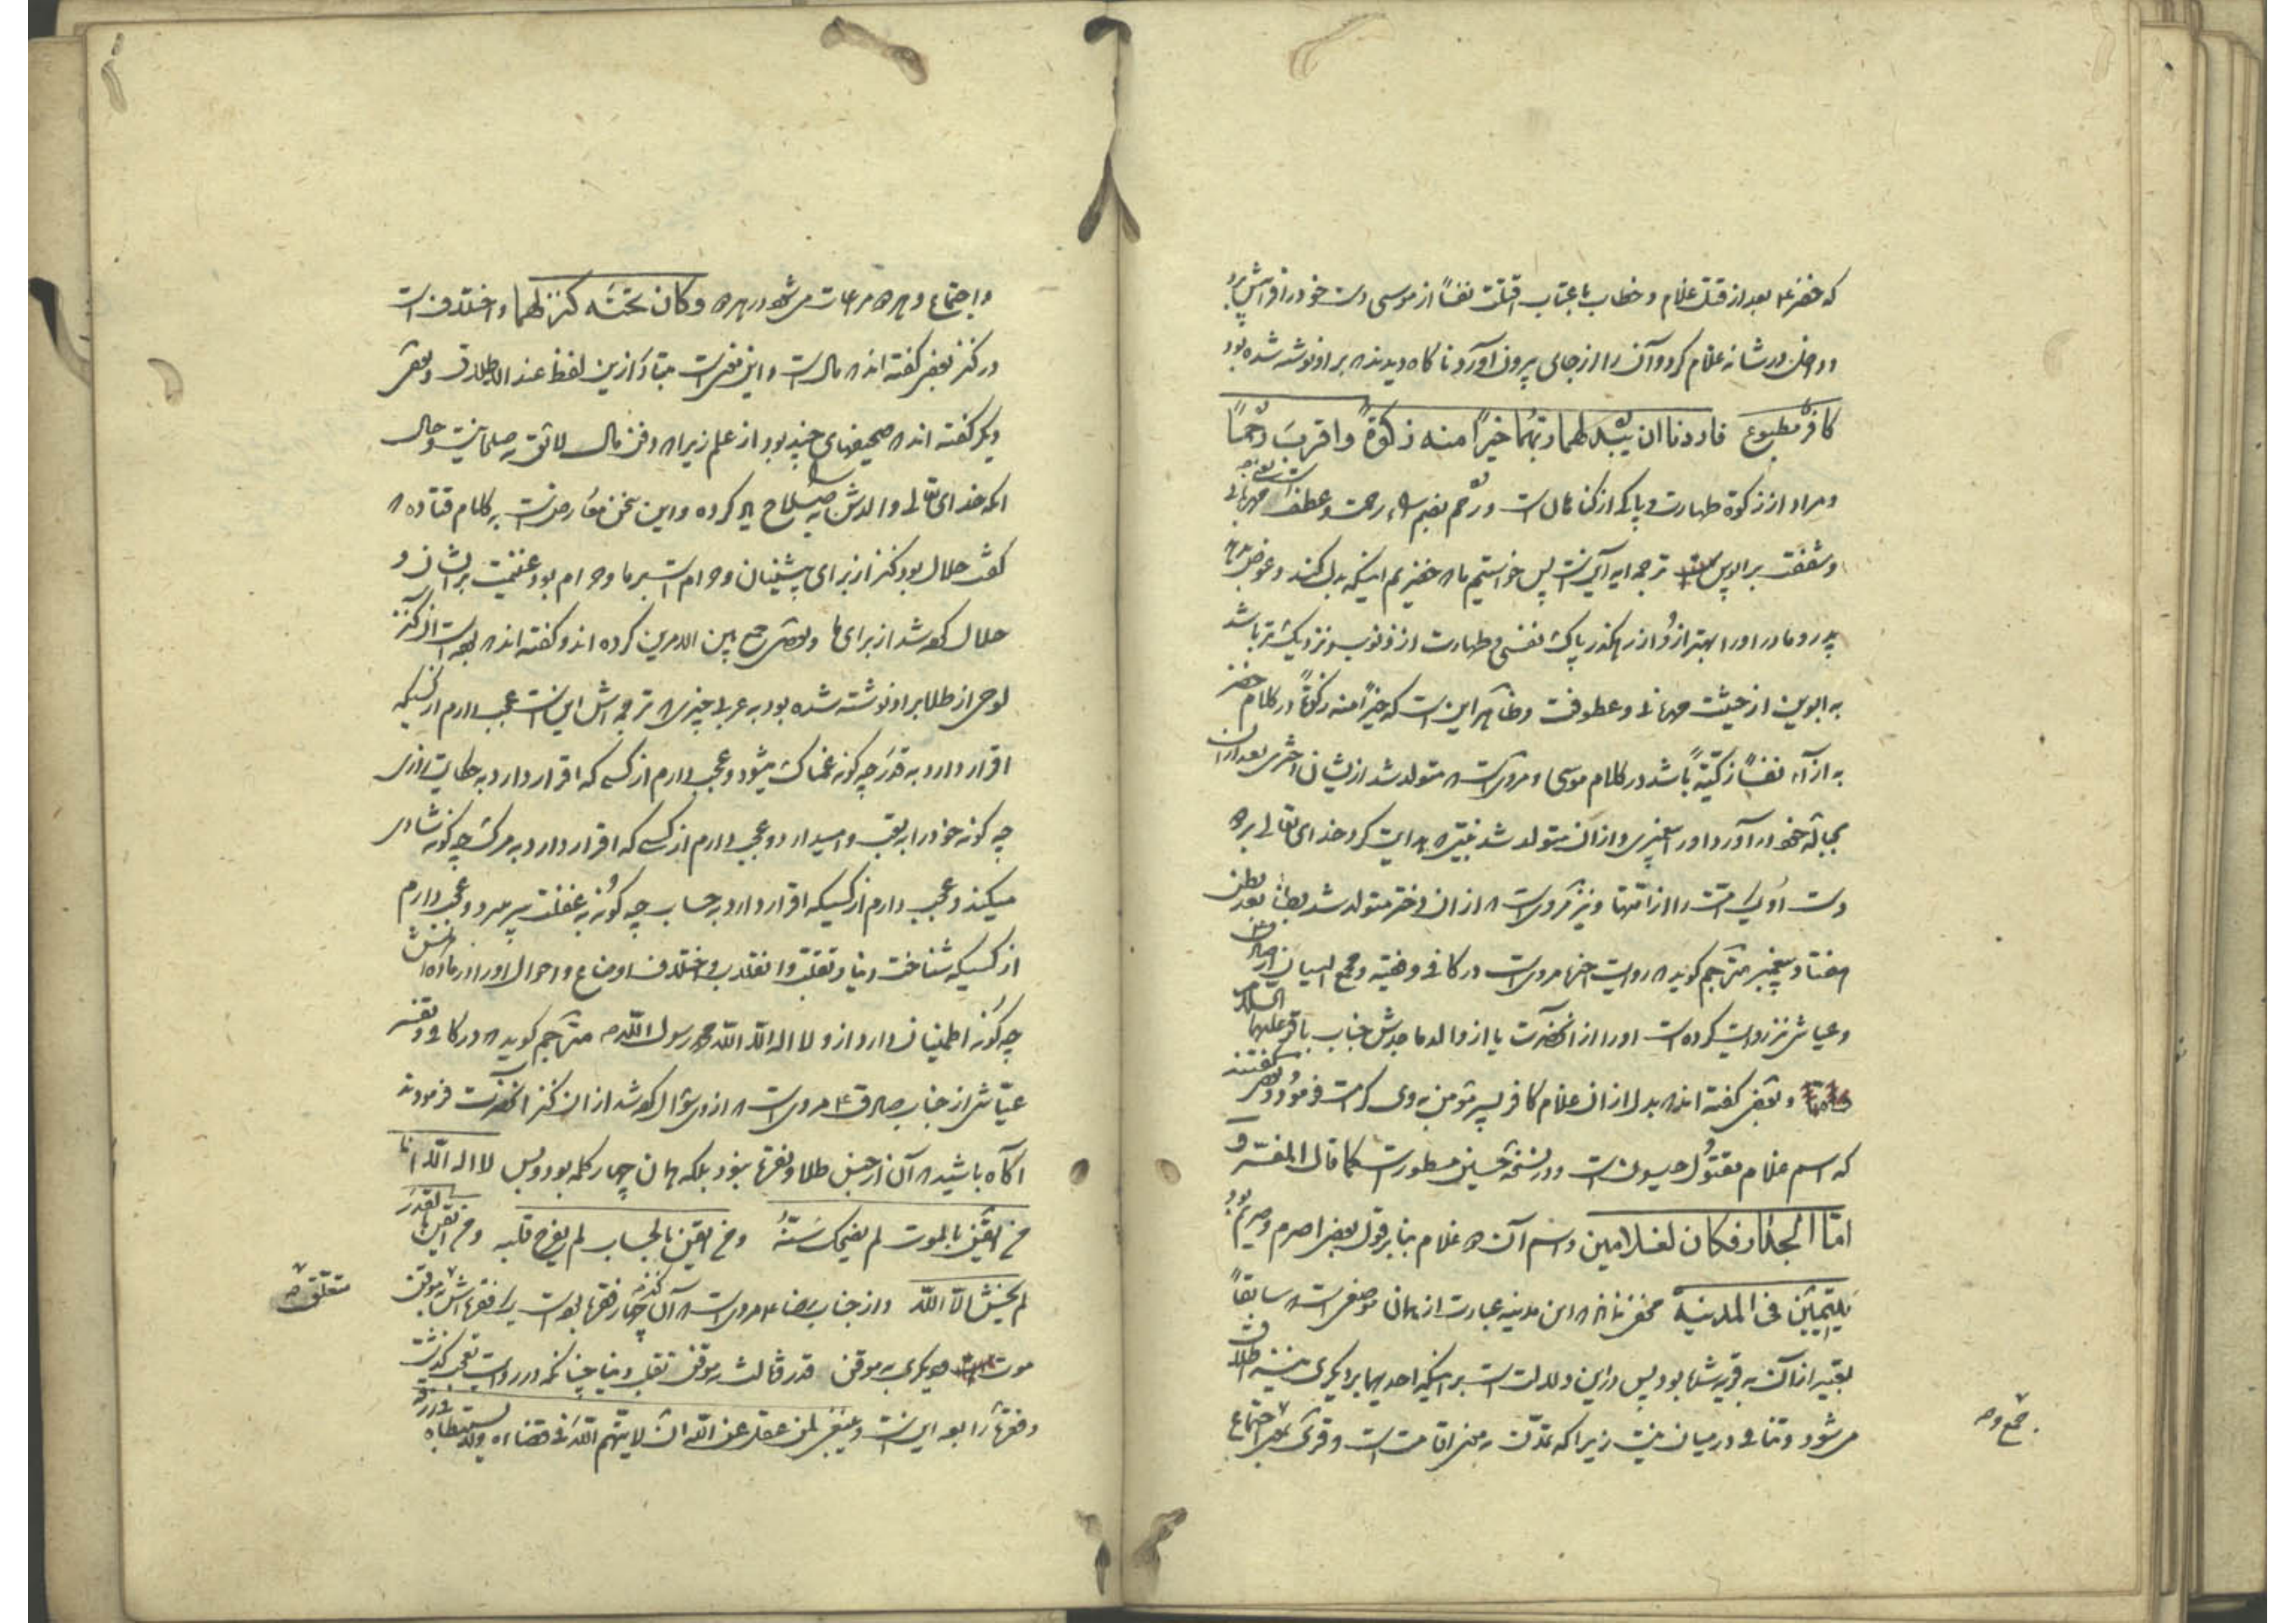 که خضر ع بعد از قتل غلام و خطاب با عتاب اقتلت نفساً از موسی دست خود را فراپیش برد
و داخل در شانه غلام کرد و آن را از جای بیرون آورد ناگاه دیدند که بر او نوشته شده بود
کافر مطبوع فاردنا ان یبدلهما ربهما خیراً منه زکوةً و اقرب رحماً
و مراد از زکوة طهارت و پاکی از گناهان است و رحم بضم راء رحمت و عطف است یعنی مهربانی
و شفقت بر ابوین ترجمه ایه آنست پس خواستیم ما که خضریم اینکه بدل کند و عوض بدهد
پدر و مادر او را بهتر از و از رهگذر پاک نفسی و طهارت از ذنوب و نزدیک تر باشد
به ابوین از حیثیت مهربانی و عطوفت و ظاهر این است که خیراً منه زکوةً در کلام خضر
به ازاء نفساً زکیةً باشد در کلام موسی و مروی است که متولد شد از ایشان دختری بعد از آن
بحباله خود در آورد او را پیغمبری و از آن متولد شد نبیی که هدایت کرد خدای تعالی بر
دست او یک امت را از امتها و نیز مروی است که از ان دختر متولد شد بطناً بعد بطن
هفتاد پیغمبر مترجم گوید که روایت اخیر مروی است در کافی و فقیه و مجمع البیان از صادق
و عیاشی نیز روایت کرده است او را از آنحضرت یا از والد ماجدش جناب باقر علیهما السلام
و بعضی گفته اند که بدل از ان غلام کافر پسر مؤمن به وی کرامت فرمود و بعضی گفتند
که اسم غلام مقتول حیسون است و در نسخه حسین مسطور است کما قال المفسّر و
امّا الجدار فکان لغلامین و اسم آن دو غلام بنابر قول بعضی اصرم و صریم بود
یتیمین فی المدینة مخفی نماند که این مدینه عبارت از همان موضعی است که سابقاً
تعبیر از آن به قریه شده بود پس در این دلالت است بر اینکه احدیهما بر دیگری نیز اطلاق
می شود و تنافی در میان نیست زیرا که تمدّن به معنی اقامت است و قری بمعنی اجتماع
جمع و
و اجتماع و هر دو مراعات می شود در هر دو و کان تحته کنز لهما و اختلاف است
در کنز بعضی گفته اند که مال است و این معنی است متبادر ازین لفظ عند الاطلاق و بعضی
دیگر گفته اند که صحیفهای چند بود از علم زیرا که دفن مال لایق به صلحا نیست و حال
آنکه خدای تعالی والدش به صلاح یاد کرده و این سخن معارض است به کلام قتاده که
گفت حلال بود کنز از برای پیشینیان و حرام است بر ما و حرام بود غنیمت بر ایشان و
حلال کرده شد از برای ما و بعضی جمع بین الامرین کرده اند و گفته اند که بوده است آن کنز
لوحی از طلا بر او نوشته شده بود به عربی چیزی که ترجمه اش این است عجب دارم از کسیکه
اقرار دارد به قدر چه گونه غمناک میشود و عجب دارم از کسی که اقرار دارد به حکایت روزی
چه گونه خود را به تعب وامیدارد و عجب دارم از کسی که اقرار دارد به مرگ چه گونه شادی
میکند و عجب دارم از کسیکه اقرار دارد به حساب چه گونه به غفلت بسر میبرد و عجب دارم
از کسیکه شناخت دنیا و تقلّب و انقلاب و اختلاف اوضاع و احوال او را در ماده اهلش
چه گونه اطمینان دارد از و لا اله الا الله محمد رسول الله مترجم گوید که در کافی و تفسیر
عیّاشی از جناب صادق ع مروی است که از وی سؤال کرده شد از ان کنز آنحضرت فرمودند
آگاه باشید که آن از جنس طلا و نقره نبود بلکه همان چهار کلمه بود و بس لا اله الّا انا
من ایقن بالموت لم یضحک سنّه و من ایقن بالحساب لم یفرح قلبه و من ایقن بالقدر
لم یخش الّا الله و از جناب رضا ع مروی است که آن کنز چهار فقره بوده است یک فقره اش موقن
متعلّق به
موت دیگری به موقن قدر ثالث به موقن تقلب دنیا چنانکه در روایت تعجب گذشت
و فقره رابعه این است و ینبغی لمن عقل عن الله ان لا یتّهم الله فی قضائه و لا یستبطئه فی رزقه